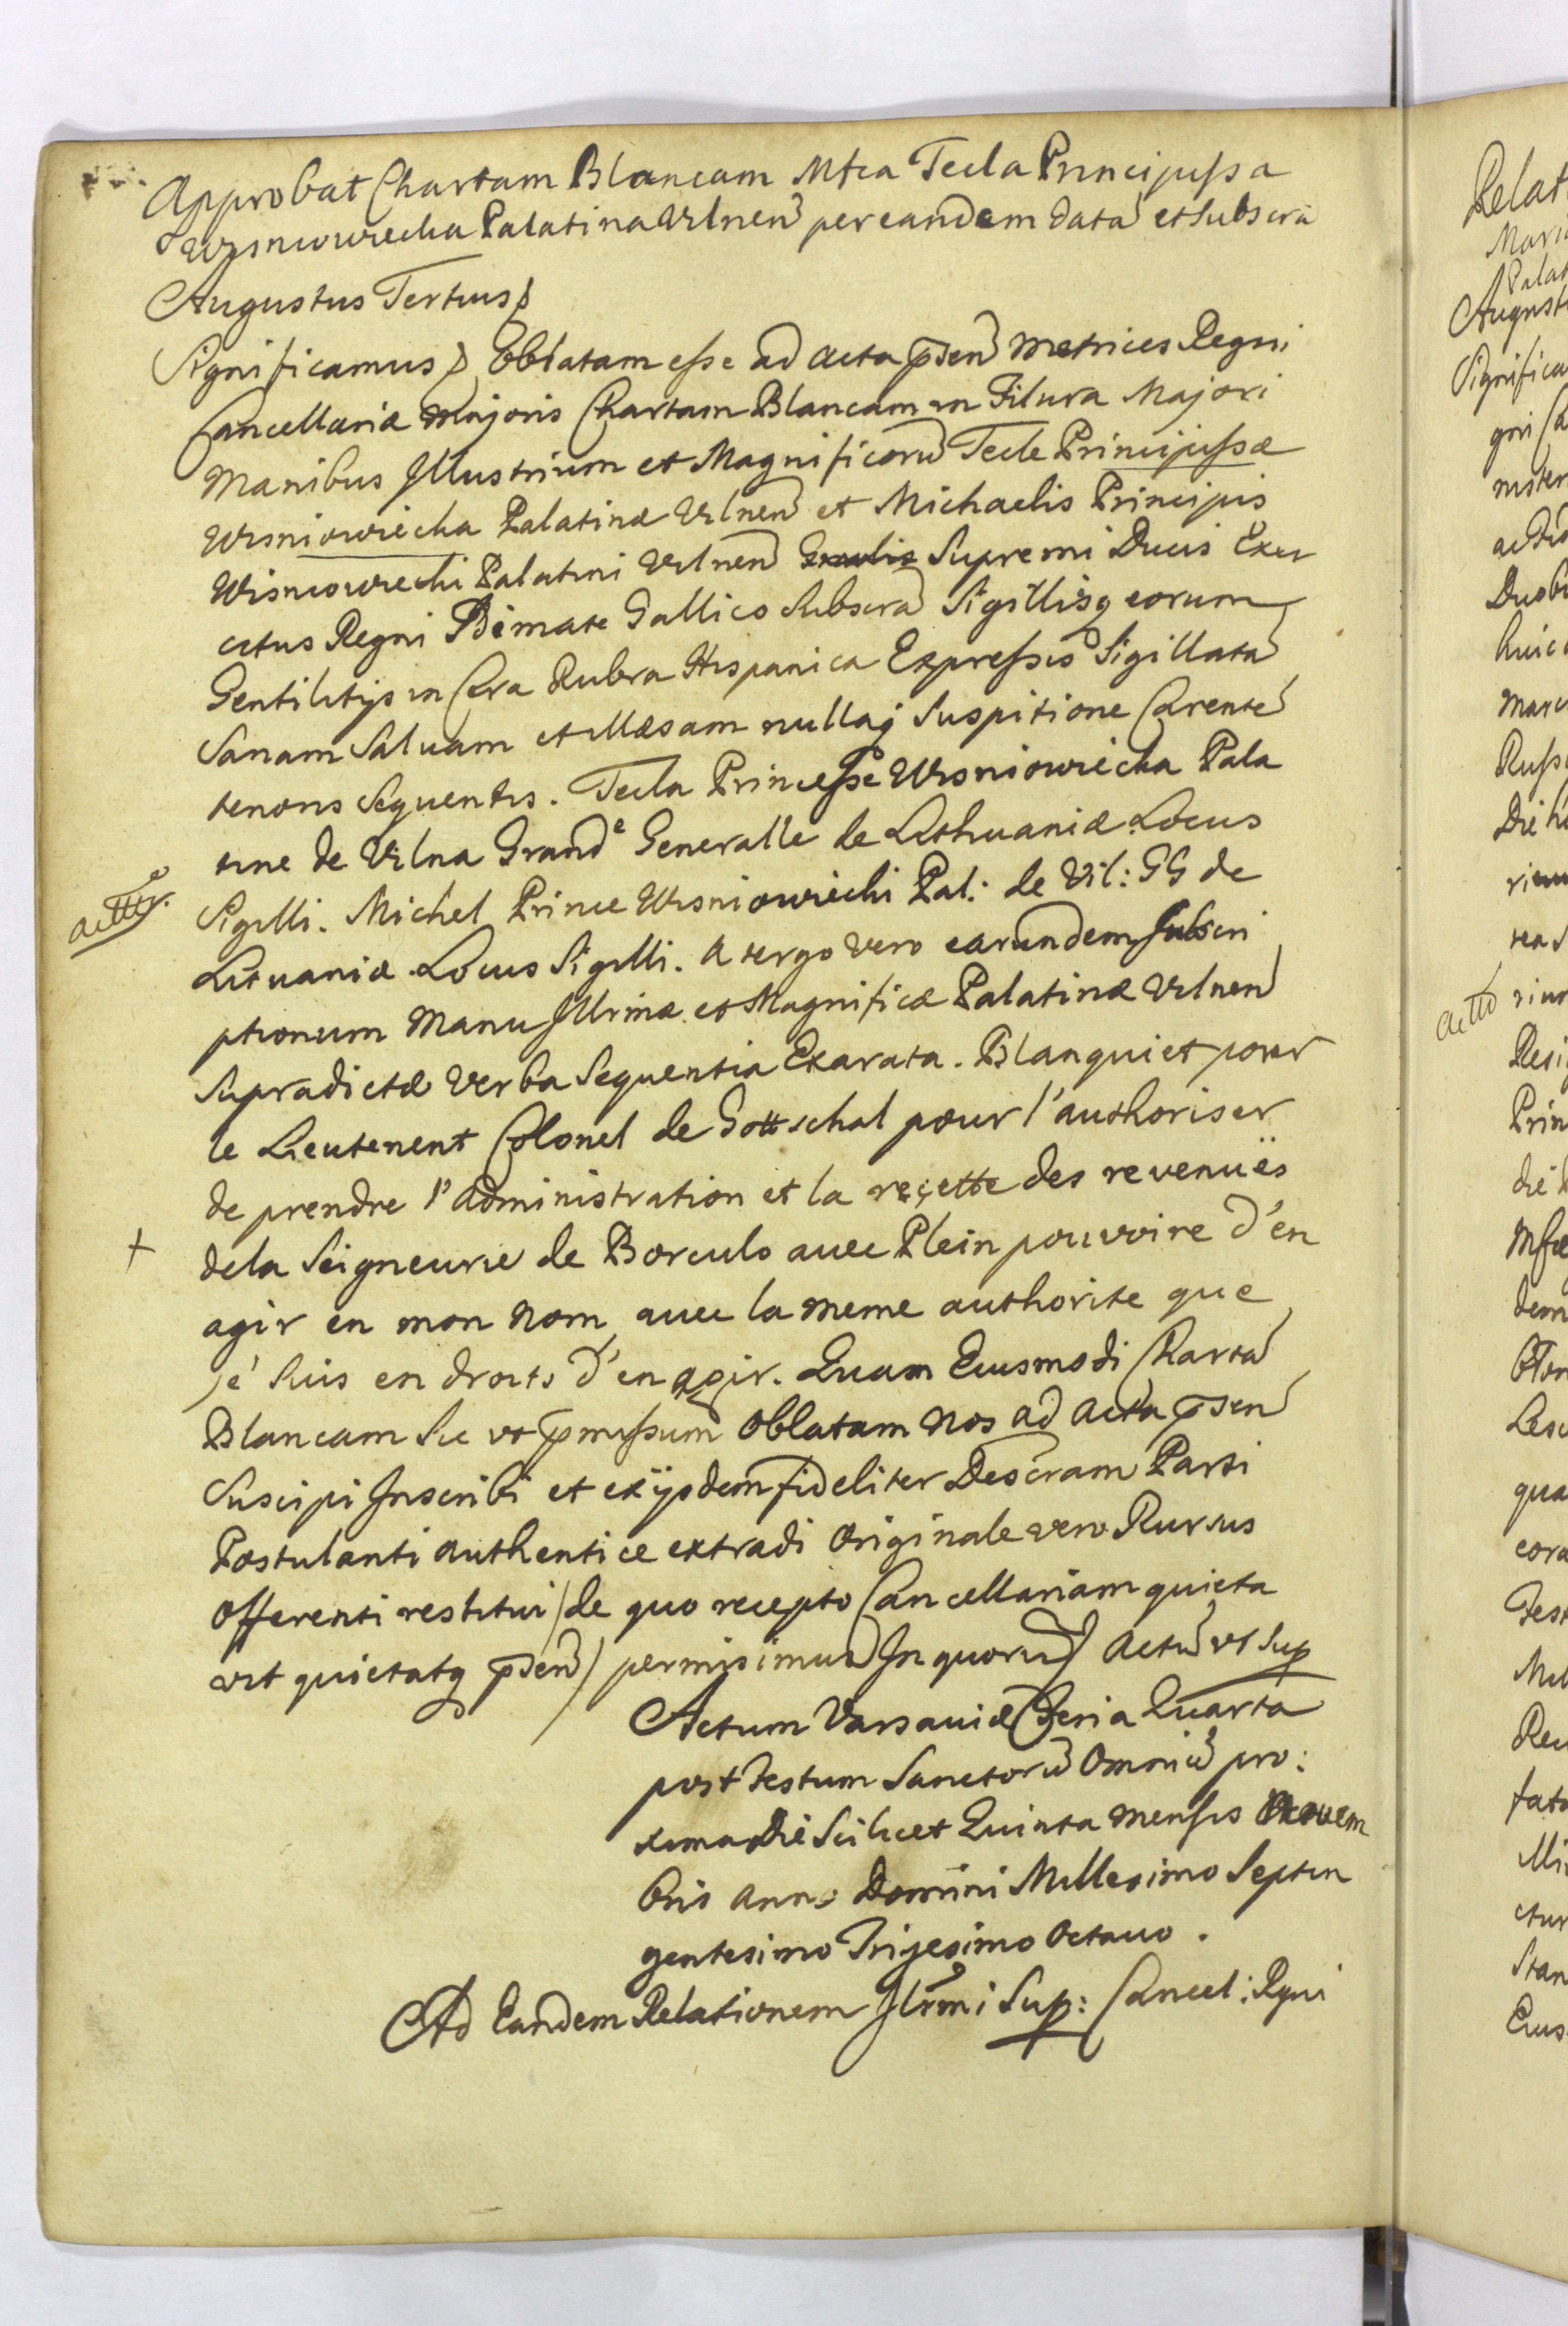 Approbat Chartam Blancam Mfca Tecla Principissa
Wisniowiecka Palatina Vilnen per eandem data et subscra
Augustus Tertius
Significamus Oblatam esse ad acta pñsen Metrices Regni
Cancellariæ Majoris Chartam Blancam in Filura Majori
Manibus Illustrium et Magnificorũ Tecle Principissæ
Wisniowiecka Palatinæ Vilnen et Michaelis Principis
Wisniowiecki Palatini Vilnen Supremi Ducis Exer
citus Regni Idiomate Gallico Subscra Sigillisq eorum
Gentilitijs in Cera Rubra Hispanica Expressis Sigillata
Sanam Saluam et illæsam nullaq Suspitione Carente
tenoris Sequentis. Tecla Princesse Wisniowiecka Pala
tine de Vilna Grande Generalle de Lithuaniæ Locus
Sigilli. Michel Prince Wisniowiecki Pal: de Vil: GG de
Lituaniæ Locus Sigilli. A tergo vero earundem subscri
ptionum Manu Illrimæ et Magnificæ Palatinæ Vilnen
Supradictæ Verba Sequentia Exarata. Blanquiet pour
le Lieutenent Colonel de Gottschal pour l'authoriser
de prendre l'administration et la reçette des revenuës
+ dela Seigneurie de Borculo auec Plein pouvoire d'en
agir en mon Nom auec la meme authorite que
je suis en droits d'en agir. Quam Eiusmodi Charta
Blancam Sic vt pmissum oblatam Nos ad acta pñsen
Suscipi Inscribi et ex ijsdem fideliter Descram Parti
Postulanti authentice extradi Originale vero Rursus
Offerenti restitui / de quo recepto Cancellariam quieta
vit quietatq pñsen / permisimus In quorũ Actũ vt Sup
Actum Varsauiæ Feria Quarta
post Festum Sanctorũ Omniũ pro:
xima Die Scilicet Quinta Mensis Novem
bris Anno Domini Millesimo Septin
gentesimo Trigesimo Octauo.
Ad Eandem Relationem Illrmi Sup: Cancel: Rgni
Relat
Palat
August
Significa